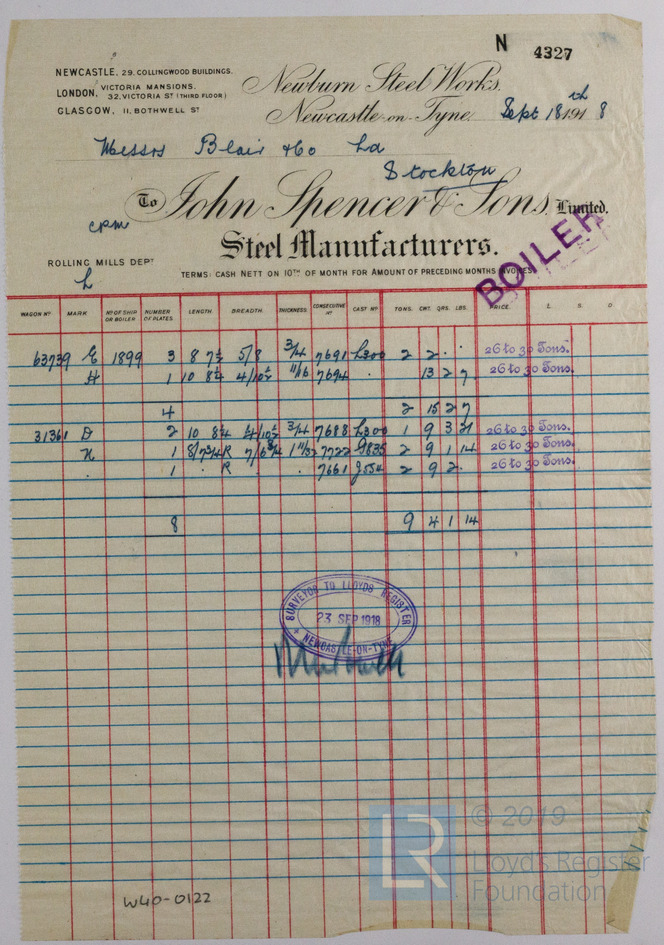 N 4327
NEWCASTLE, 29. COLLINGWOOD BUILDINGS.
LONDON, VICTORIA MANSIONS. 32, VICTORIA ST (THIRD FLOOR)
GLASGOW, 11, BOTHWELL ST
Newburn Steel Works.
Newcastle-on-Tyne. Sept 18th 1918
Messrs Blair & Co Ld
Stockton
To John Spencer & Sons, Limited.
Steel Manufacturers.
ROLLING MILLS DEPT
L
TERMS: CASH NETT ON 10TH OF MONTH FOR AMOUNT OF PRECEDING MONTHS INVOICES
BOILER
WAGON NO MARK NO OF SHIP OR BOILER NUMBER OF PLATES LENGTH. BREADTH. THICKNESS. CONSECUTIVE NO CAST NO TONS. CWT. QRS. LBS. PRICE. £ S. D
63739 E 1899 3 8 7½ 5/8 3/4 7691 L300 2 2 . . 26 to 30 Tons.
H 1 10 8¼ 4/10½ 11/16 7694 . 13 2 7 26 to 30 Tons.
4 2 15 2 7
31361 D 2 10 8¼ 4/10½ 3/4 7688 L300 1 9 3 21 26 to 30 Tons.
K 1 8/7¾ R 7/6¾ 1 11/32 7722 9835 2 9 1 14 26 to 30 Tons.
. 1 R 7661 2 9 2 . 26 to 30 Tons.
8 9 4 1 14
SURVEYOR TO LLOYDS REGISTER
23 SEP 1918
NEWCASTLE-ON-TYNE
LR
© 2019
Lloyd's Register
Foundation
W40-0122